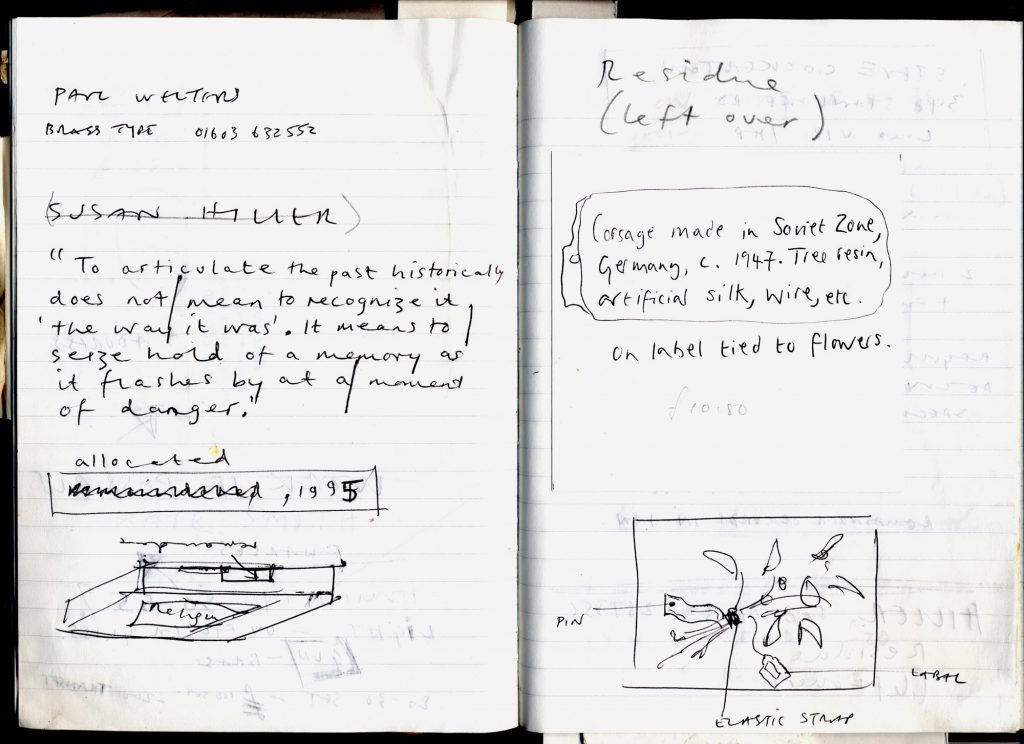 PAUL
BRASS TYPE 01603 632552
(SUSAN HILLER)
"To articulate the past historically
does not mean to recognize it
'the way it was'. It means to
seize hold of a memory as
it flashes by at a moment
of danger."
allocated
remaindered, 1995
remainder
Residue
(left over)
Corsage made in Soviet Zone,
Germany, c. 1947. Tree resin,
artificial silk, wire, etc.
on label tied to flowers.
£10.50
PIN
LABAL
ELASTIC STRAP